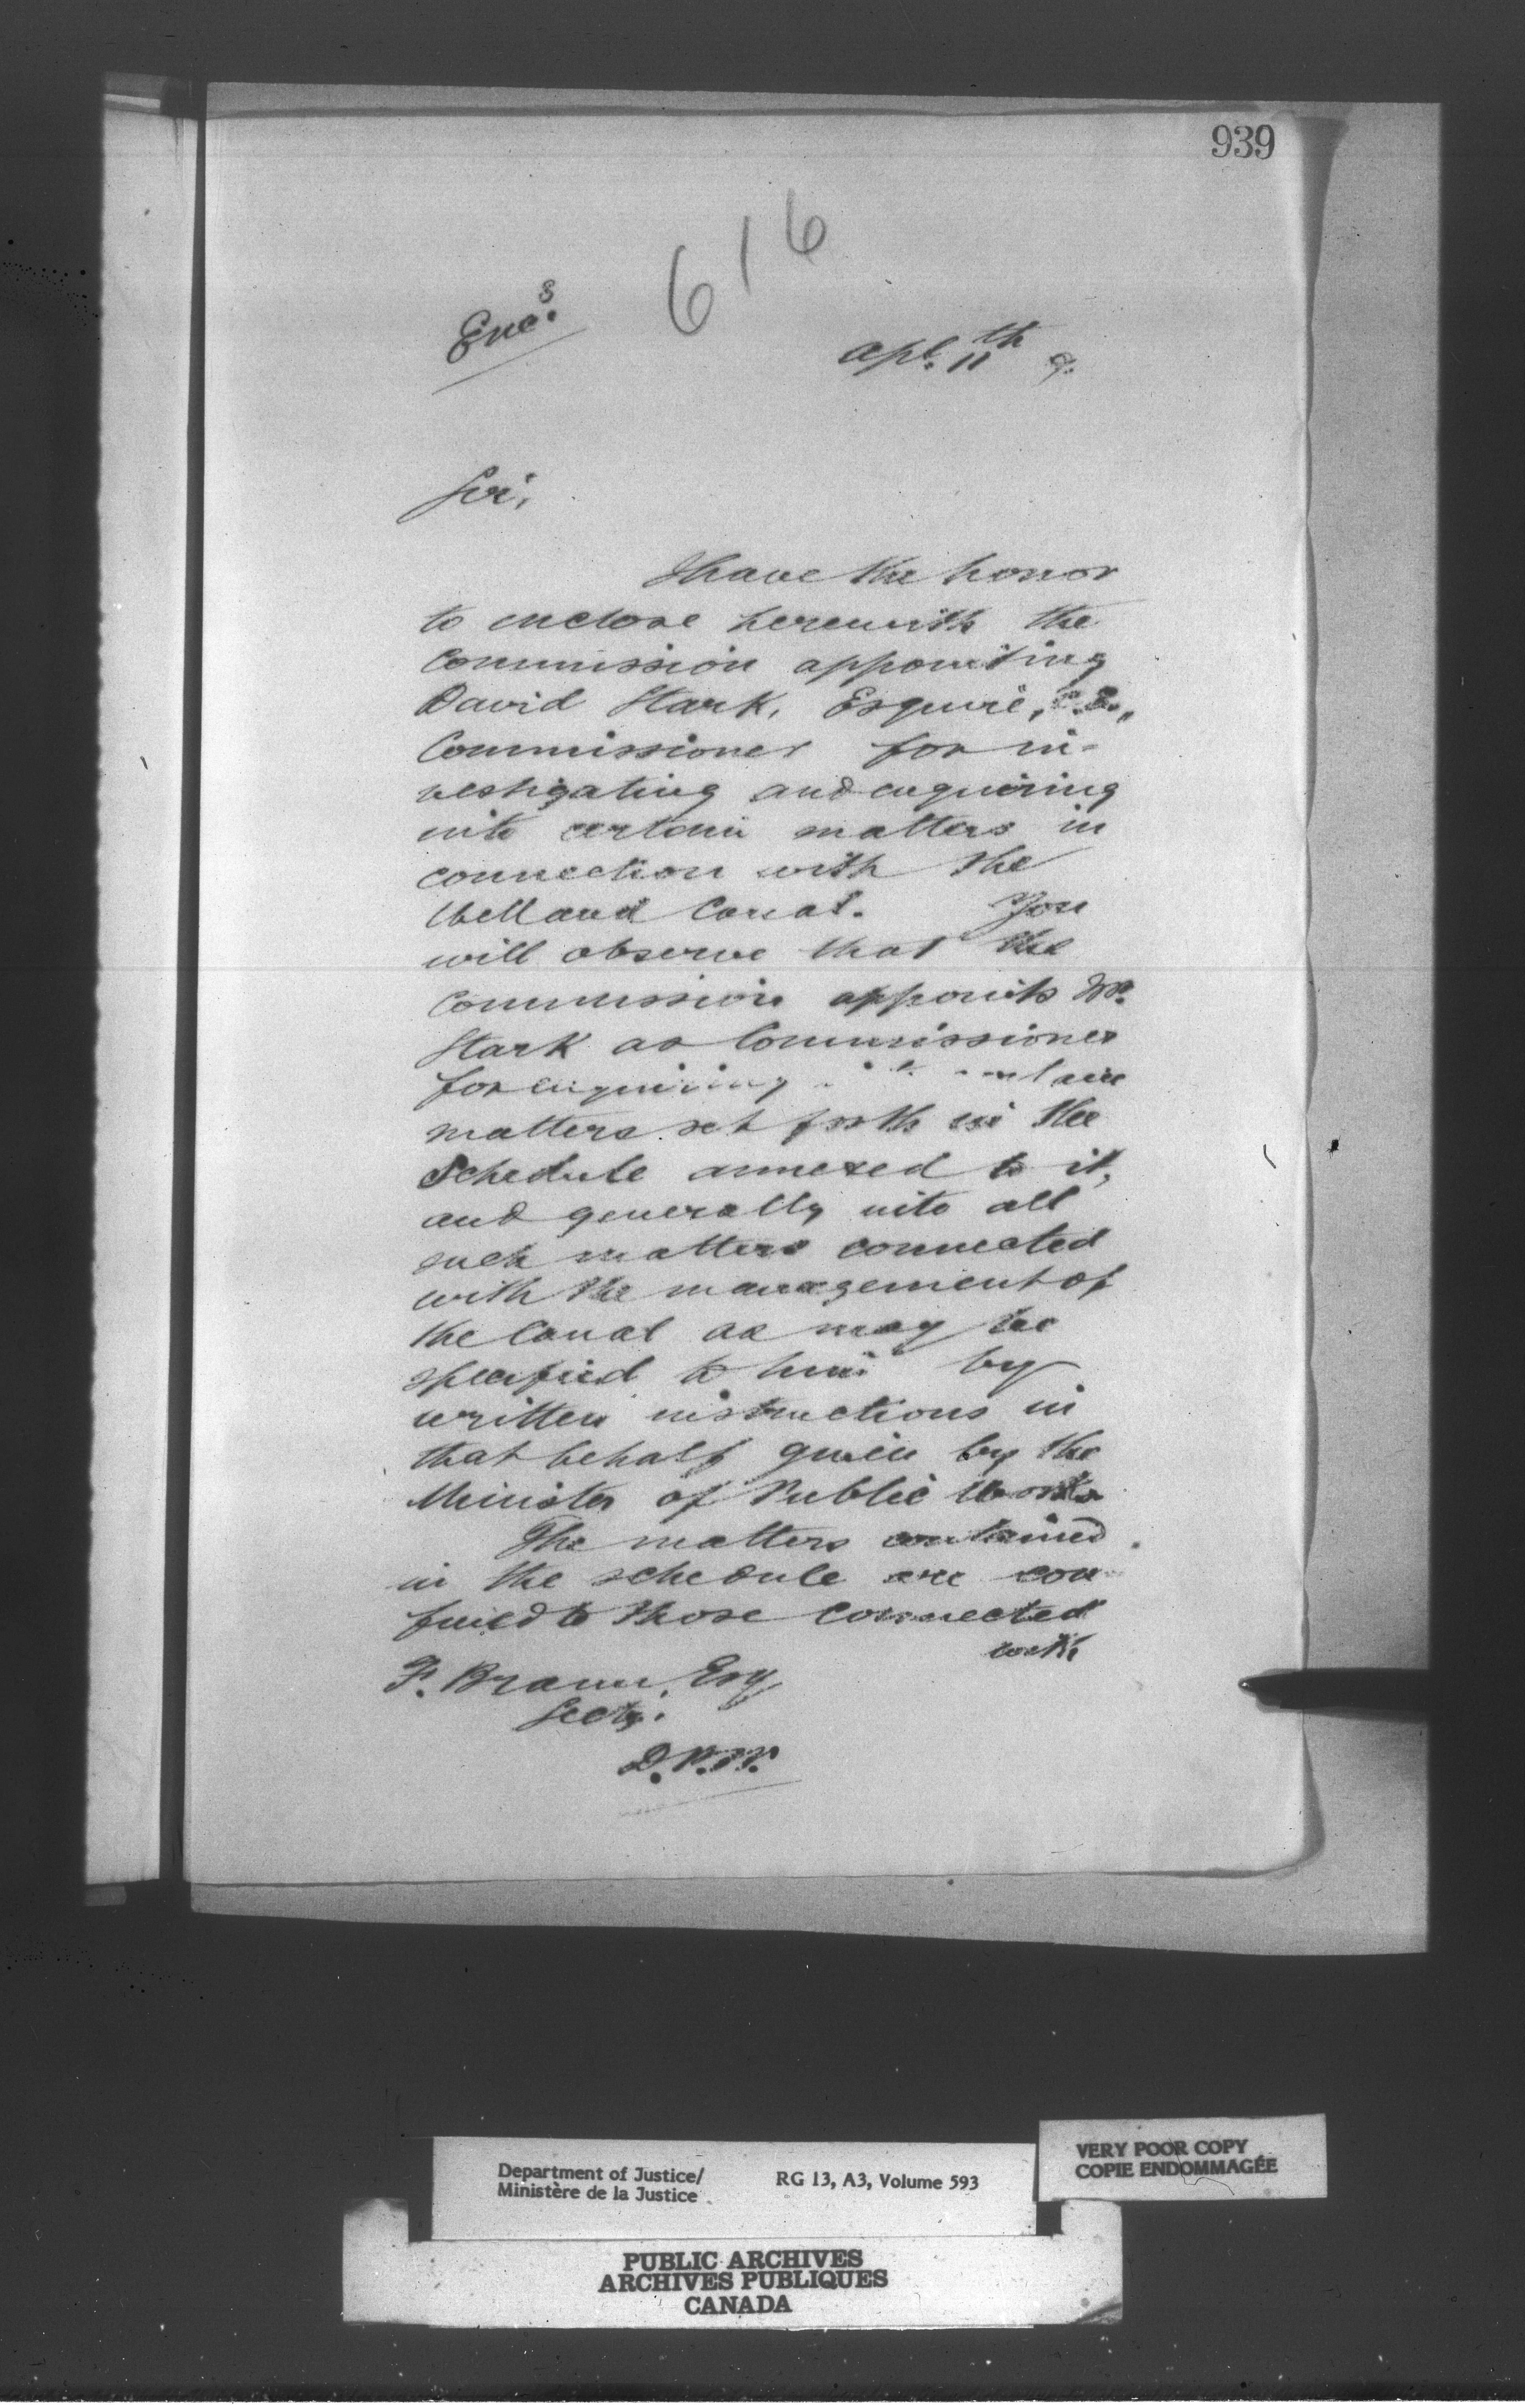 939
616
Enc.s
Apl. 11th 9.
Sir,
I have the honor
to enclose herewith the
Commission appointing
David Stark, Esquire, C.E.,
Commissioner for in-
vestigating and enquiring
into certain matters in
connection with the
Welland Canal. You
will observe that the
Commission appoints Mr.
Stark as Commissioner
for enquiring
matters set forth in the
Schedule annexed to it,
and generally into all
such matters connected
with the management of
the Canal as may be
specified to him by
written instructions in
that behalf given by the
Minister of Public Works
The matters contained
in the schedule are con
fined to those connected
with
F. Braun, Esq
Secty.
D.P.W.
Department of Justice/
Ministère de la Justice
RG 13, A3, Volume 593
VERY POOR COPY
COPIE ENDOMMAGÉE
PUBLIC ARCHIVES
ARCHIVES PUBLIQUES
CANADA